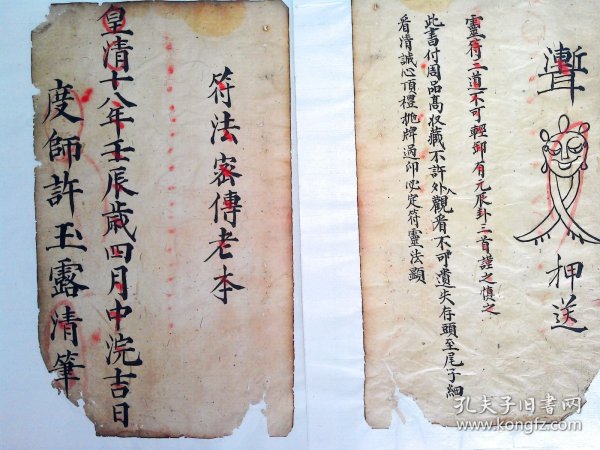 押送
靈符二道不可輕卸有元辰卦三首謹之慎之
此書付周品高收藏不許外人觀看不可遺失存頭至尾子細
看清誠心頂禮拋牌過印必定符靈法顯
符法密傳老本
皇清十八年壬辰歲四月中浣吉日
度師許玉露清筆
孔夫子旧书网
www.kongfz.com